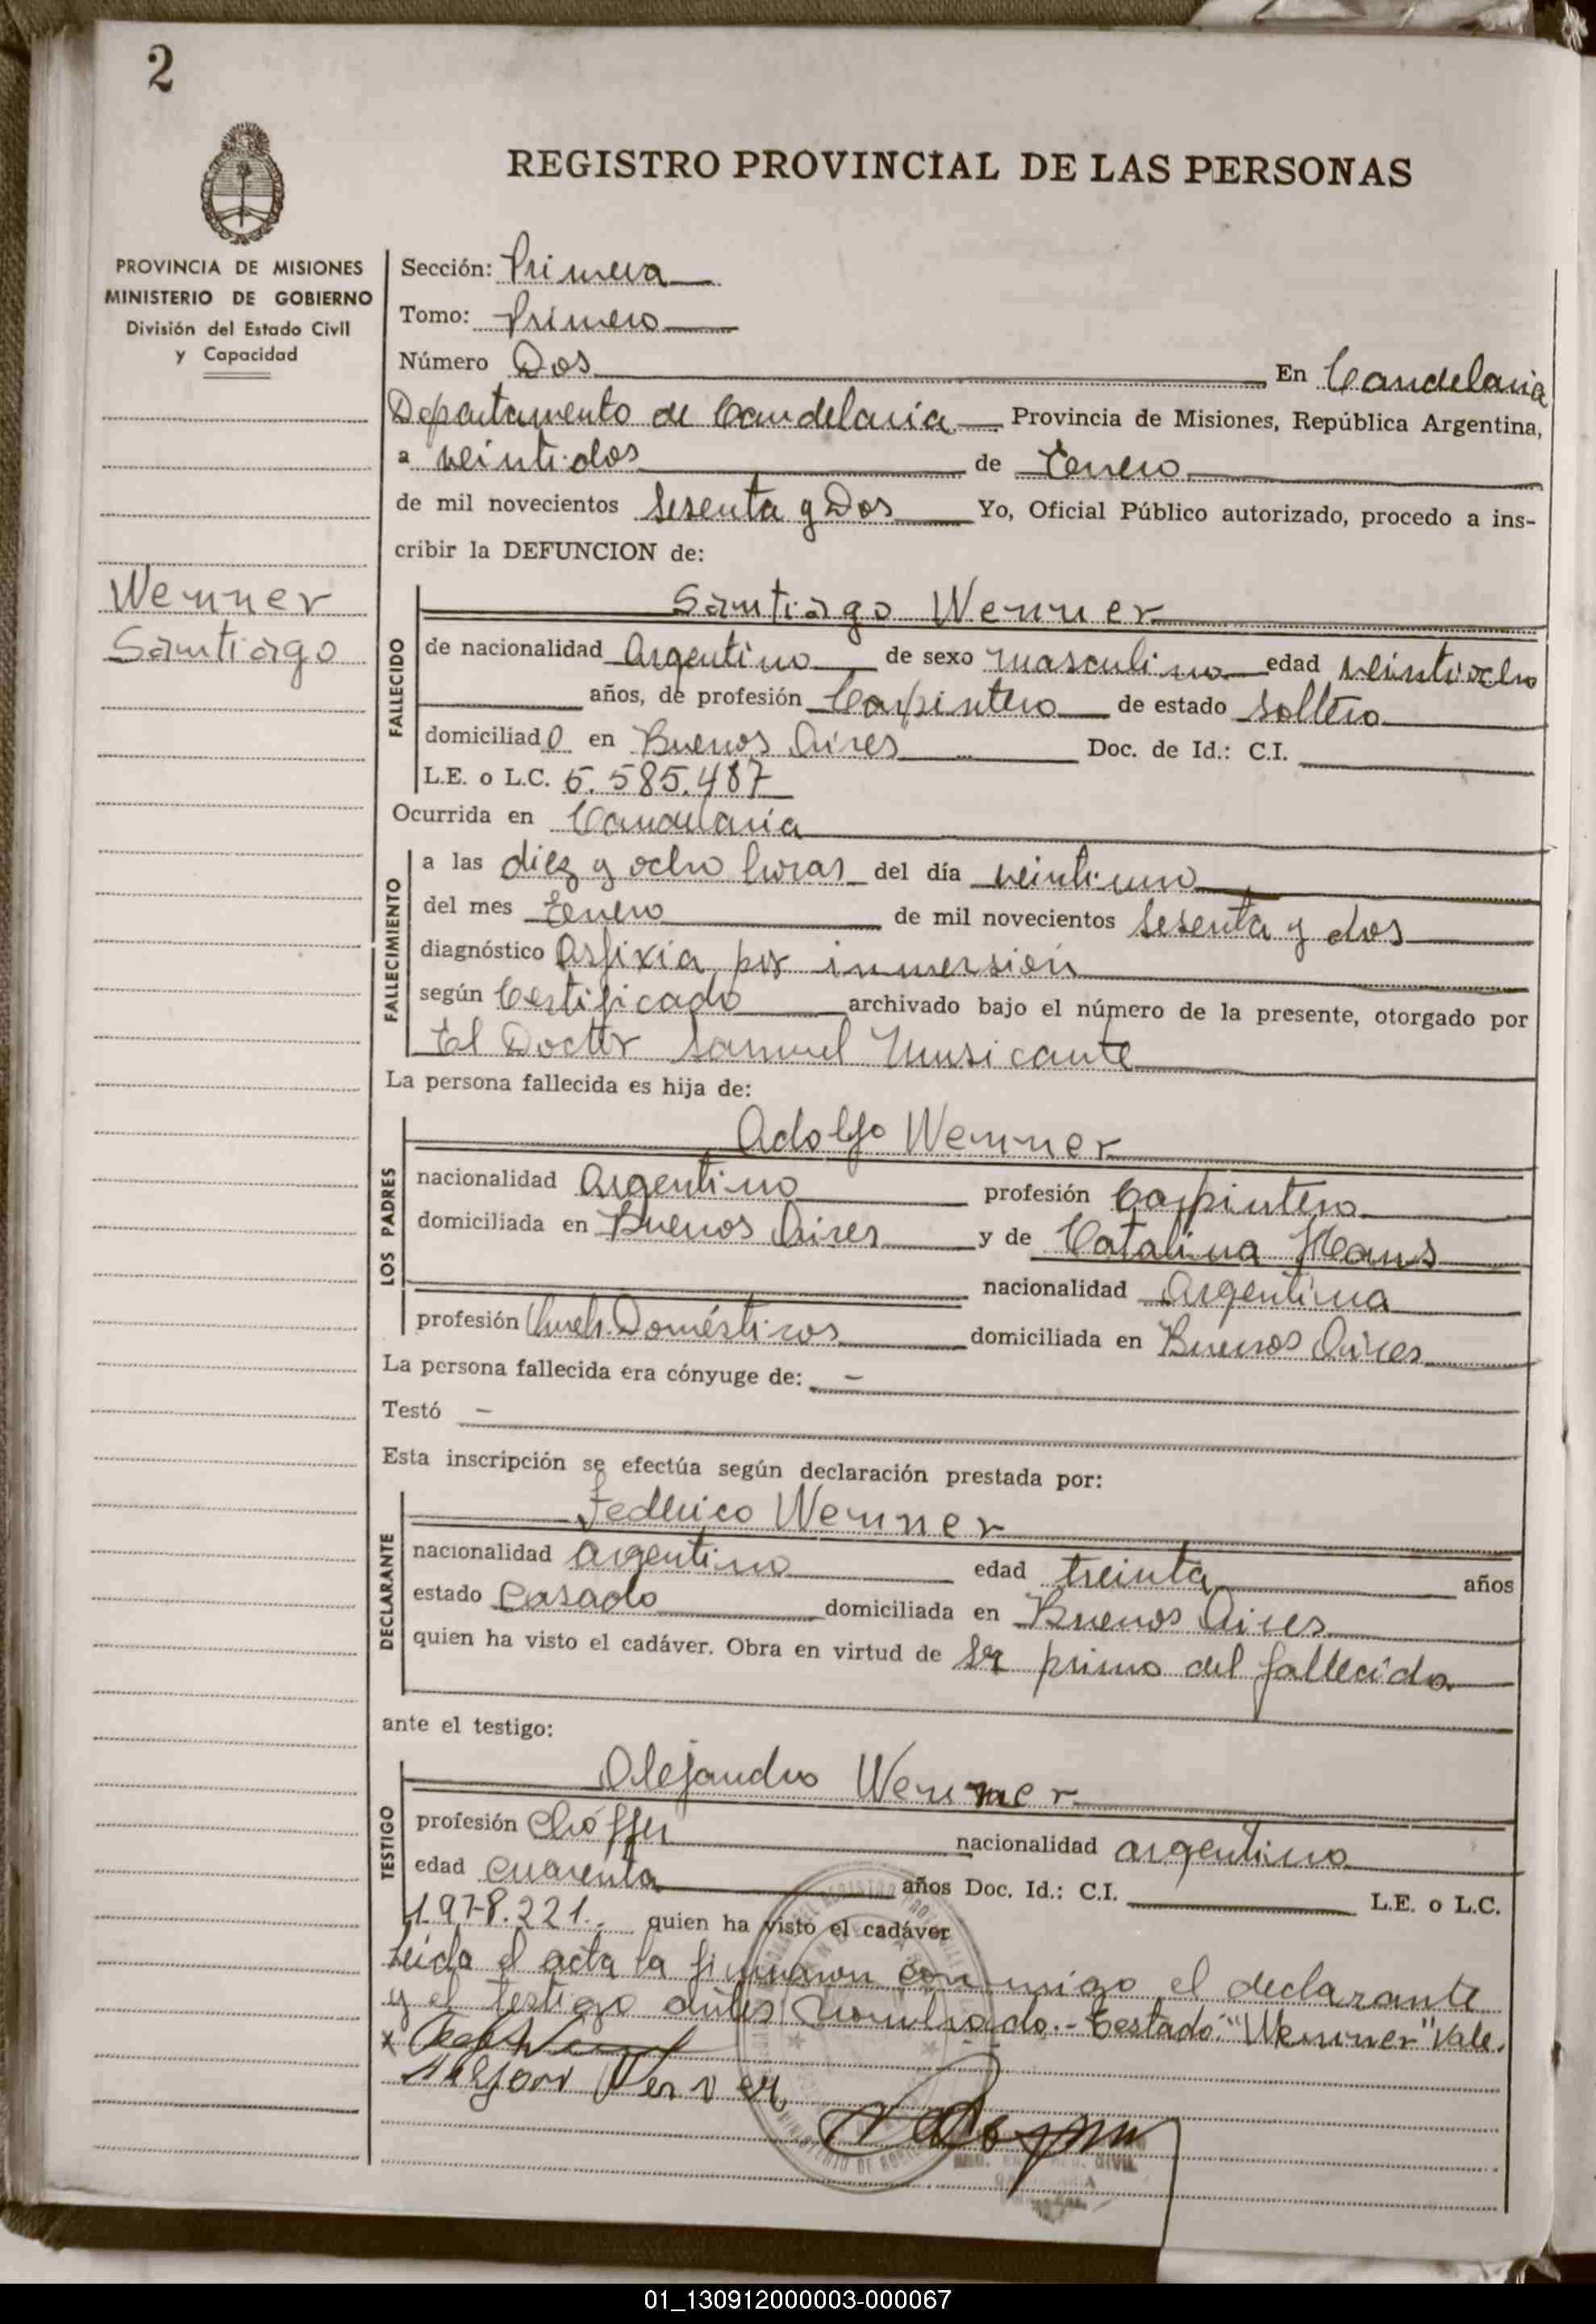 2
REGISTRO PROVINCIAL DE LAS PERSONAS
PROVINCIA DE MISIONES
MINISTERIO DE GOBIERNO
División del Estado Civil
y Capacidad
Wenner
Santiago
Sección: Primera
Tomo: Primero
Número Dos En Candelaria
Departamento de Candelaria Provincia de Misiones, República Argentina,
a veintidos de Enero
de mil novecientos Sesenta y Dos Yo, Oficial Público autorizado, procedo a ins-
cribir la DEFUNCION de:
FALLECIDO
Santiago Wenner
de nacionalidad Argentino de sexo masculino edad veintiocho
años, de profesión Carpintero de estado soltero
domiciliado en Buenos Aires Doc. de Id.: C.I.
L.E. o L.C. 5.585.487
Ocurrida en Candelaria
FALLECIMIENTO
a las diez y ocho horas del día veintiuno
del mes Enero de mil novecientos sesenta y dos
diagnóstico Asfixia por inmersión
según Certificado archivado bajo el número de la presente, otorgado por
El Doctor Samuel Musicante
La persona fallecida es hija de:
LOS PADRES
Adolfo Wenner
nacionalidad Argentino profesión Carpintero
domiciliada en Buenos Aires y de Catalina
nacionalidad Argentina
profesión Domésticos domiciliada en Buenos Aires
La persona fallecida era cónyuge de: -
Testó -
Esta inscripción se efectúa según declaración prestada por:
DECLARANTE
Federico Wenner
nacionalidad argentino edad treinta años
estado Casado domiciliada en Buenos Aires
quien ha visto el cadáver. Obra en virtud de ser primo del fallecido
ante el testigo:
TESTIGO
Alejandro Wenner
profesión Chóffer nacionalidad argentino
edad cuarenta años Doc. Id.: C.I. L.E. o L.C.
1.978.221.- quien ha visto el cadáver
Leida el acta la firmaron conmigo el declarante
y el testigo antes nombrado.- Testado: "Wenner" Vale.
01_130912000003-000067